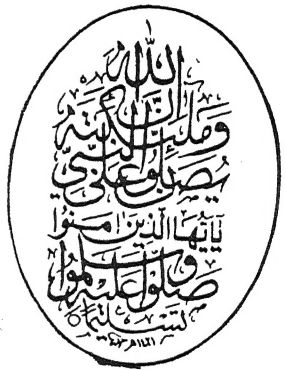 ان الله
وملئكته
يصلون على النبي
يايها الذين امنوا
صلوا عليه وسلموا
تسليما